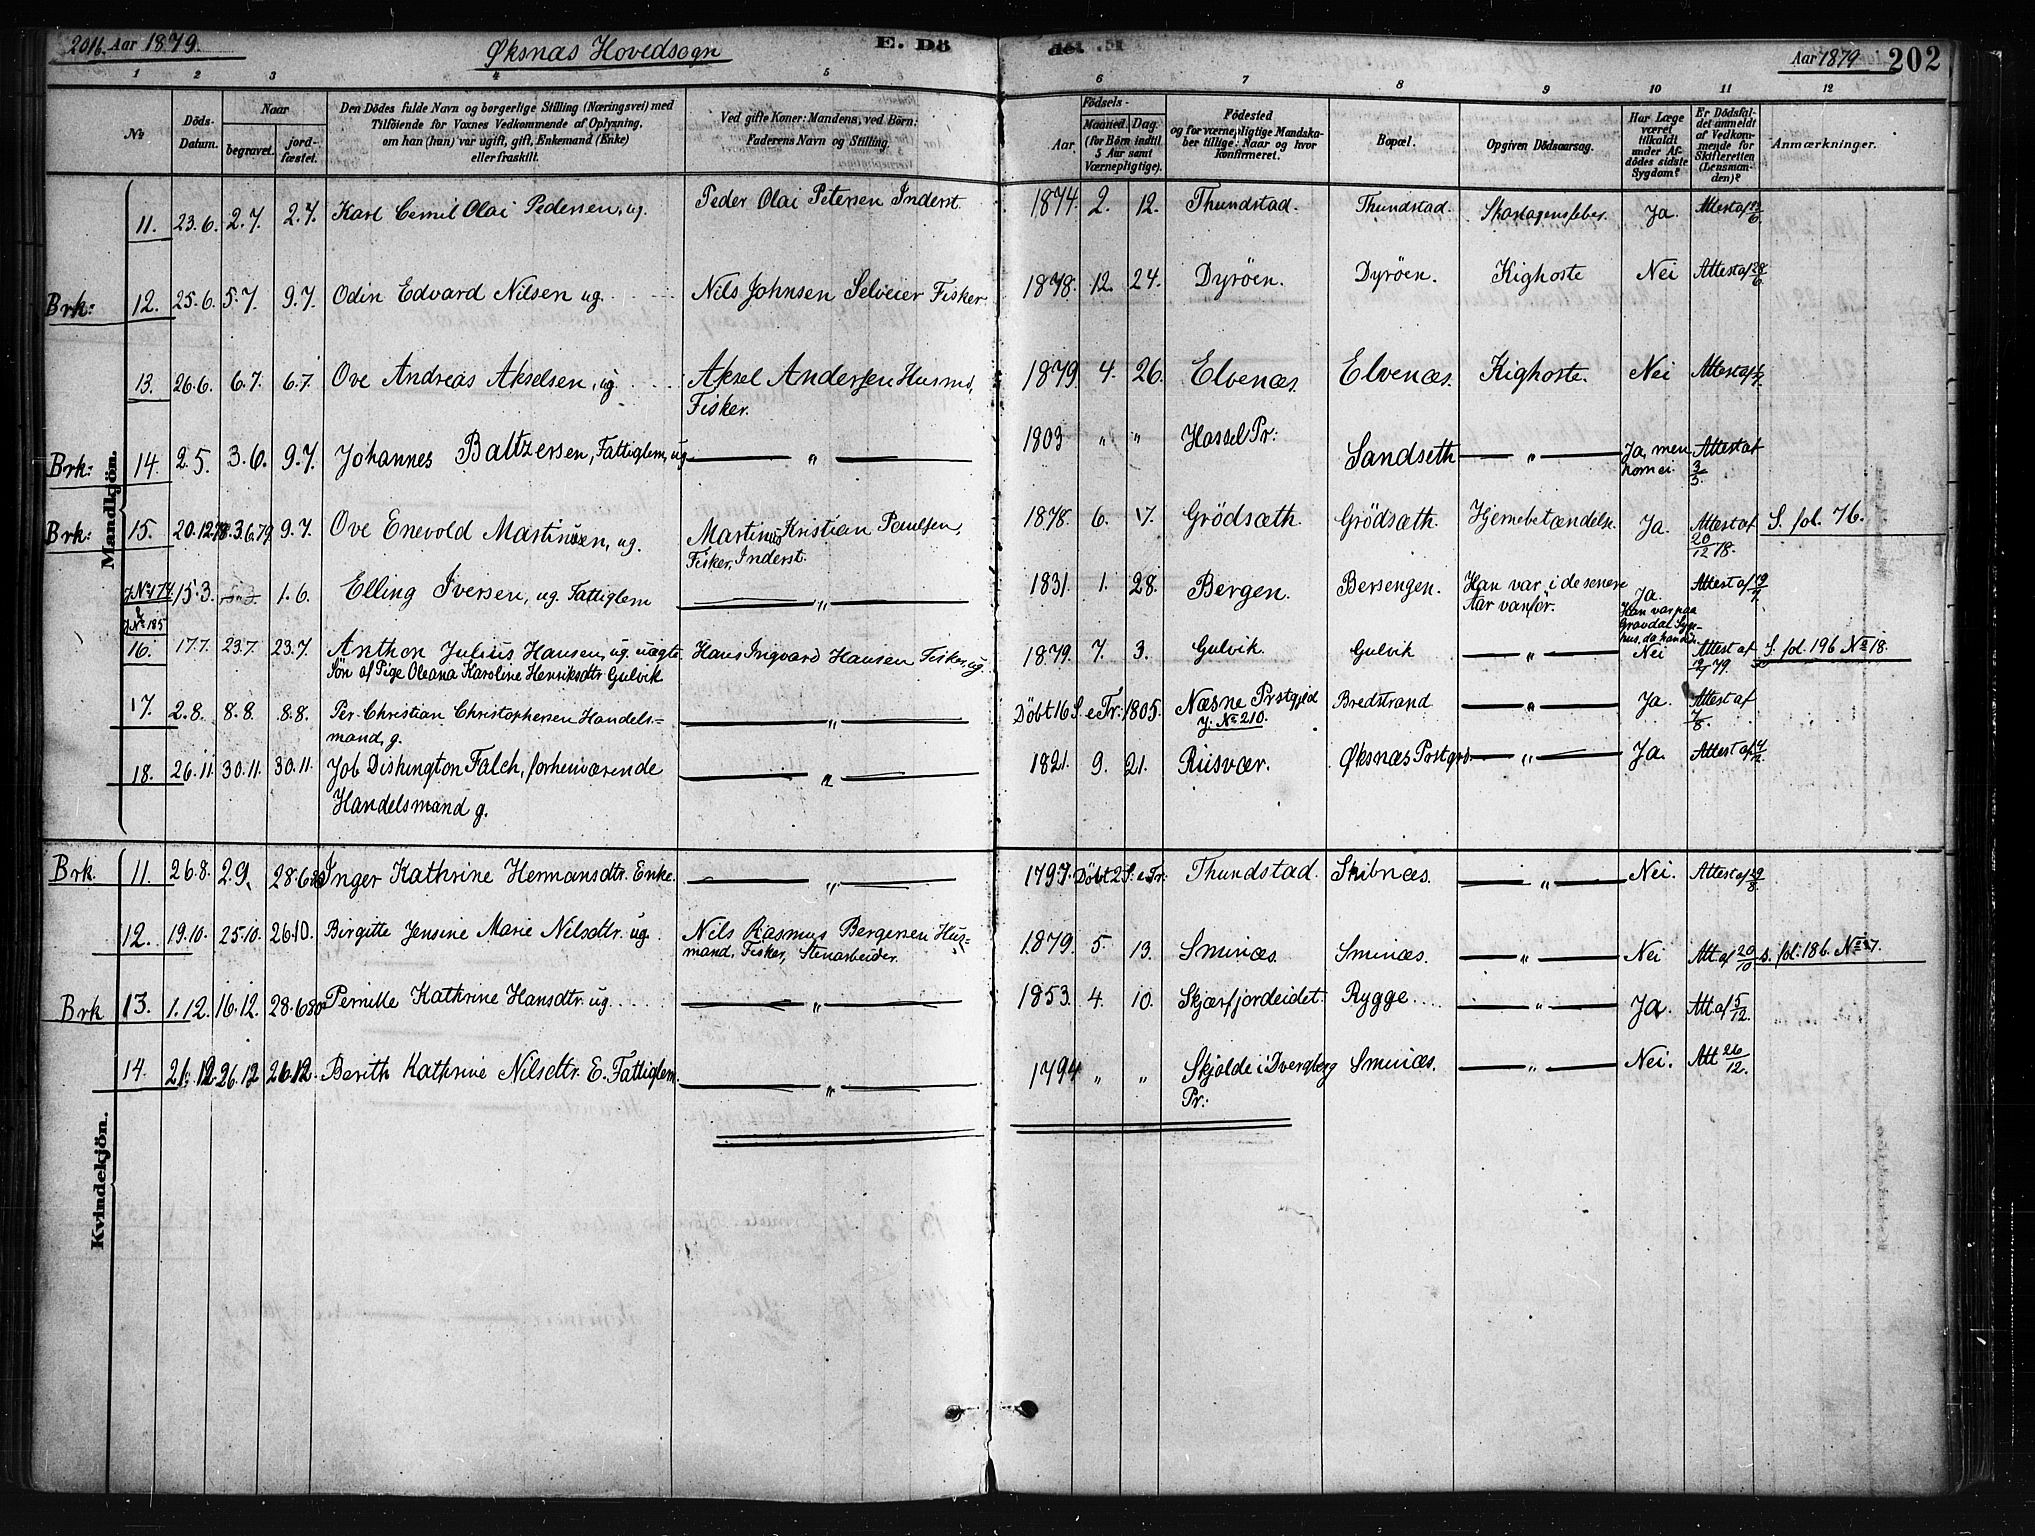 201b. Aar 1879. Øksnæs Hovedsogn E. Dö
de. M Aar 1879 202
1 2 3 4 5 6 7 8 9 10 11 12
No Döds-Datum. Naar begravet. jord-fæstet. Den Dödes fulde Navn og borgerlige Stilling (Næringsvei) med Tilföiende for Voxnes Vedkommende af Oplysning, om han (hun) var ugift, gift, Enkemand (Enke) eller fraskilt. Ved gifte Koner: Mandens, ved Börn: Faderens Navn og Stilling.
Födsels- Aar. Maaned. Dag. (for Börn indtil 5 Aar samt Værnepligtige). Födested og for værnepligtige Mandskaber tillige: Naar og hvor konfirmeret. Bopæl. Opgiven Dödsaarsag. Har Læge været tilkaldt under Afdödes sidste Sygdom? Er Dödsfaldet anmeldt af Vedkommende for Skifteretten (Lensmanden)? Anmærkninger.
Mandkjön.
11. 23.6. 2.7. 2.7. Karl Cemil Olai Pedersen, ug. Peder Olai Petersen Inderst. 1874. 2. 12. Thundstad. Thundstad. Skarlagensfeber. Ja. Attest af 23/6.
Brk: 12. 25.6. 5.7. 9.7. Odin Edvard Nilsen ug. Nils Johnsen Selveier Fisker. 1878. 12. 24. Dyröen. Dyröen. Kighoste Nei Attest af 28/6.
13. 26.6. 6.7. 6.7. Ove Andreas Akselsen, ug. Aksel Andersen Husmd,
Fisker. 1879 4. 26. Elvenæs. Elvenæs. Kighoste. Nei Attest af
Brk: 14. 2.5. 3.6. 9.7. Johannes Baltzersen, Fattiglem, ug — „ — 1803 „ „ Hassel Pr: Sandseth — „ — Ja, men
kom ei. Attest af
3/5.
Brk: 15. 20.12.78. 3.6.79 9.7. Ove Enevold Martinusen, ug. Martinus Kristian Paulsen,
Fisker, Inderst. 1878. 6. 17. Grödsæth. Grödsæth. Hjernebetændelse. Ja. Attest af
20/12 78. S. fol. 76.
J. No 174
& J. No 185 15.3. 1.6. Elling Iversen, ug. Fattiglem — „ — 1831. 1. 28. Bergen. Bersengen. Han var i de senere
Aar vanför. Ja.
Han var paa
Gravdal Syge-
hus, da han döde. Attest af
16. 17.7. 23.7. 23.7. Anthon Julius Hansen, ug. uægte
Sön af Pige Oleana Karoline Henriksdtr Gulvik Hans Ingvard Hansen Fisker, ug. 1879. 7. 3. Gulvik Gulvik — „ — Nei Attest af
79. S. fol. 196 No 18.
17. 2.8. 8.8. 8.8. Per Christian Christophersen Handels=
mand, g. — „ — Döbt 16 S. e Tr. 1805. Næsne Prstgjæld
J. No 210. Bredstrand — „ — Ja. Attest af
7/8.
18. 26.11. 30.11. 30.11. Job Dishington Falch, forhenværende
Handelsmand g. — „ — 1821. 9. 21. Riisvær. Øksnæs Prstgrd. — „ — Ja. Attest af 4/12.
Kvindekjön.
Brk 11. 26.8. 2.9. 28.6.80 Inger Kathrine Hermansdtr. Enke. — „ — 1797. Döbt 2 S. e Tr: Thundstad. Skibnæs. — „ — Nei. Attest af 29/8.
12. 19.10. 25.10. 26.10. Birgitte Jensine Marie Nilsdtr. ug. Nils Rasmus Bergersen Hus=
mand, Fisker, Stenarbeider. 1879. 5. 13. Sminæs. Sminæs. — „ — Nei Att af 20/10 s. fol. 186. No 27.
Brk 13. 1.12. 16.12. 28.6.80 Pernille Kathrine Hansdtr. ug. — „ — 1853. 4. 10. Skjærfjordeidet. Rygge. — „ — Ja. Att af 5/12.
14. 21.12. 26.12 26.12. Berith Kathrine Nilsdtr. E. Fattiglem. — „ — 1794 „ „ Skjolde i Dverberg
Pr: Sminæs. — „ — Nei. Att 26/12